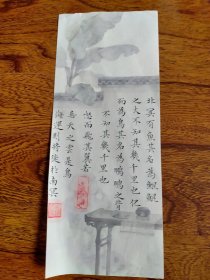 北冥有魚其名為鯤鯤
之大不知其幾千里也化
而為鳥其名為鵬鵬之背
不知其幾千里也
怒而飛其翼若
垂天之雲是鳥
海運則將徙於南冥